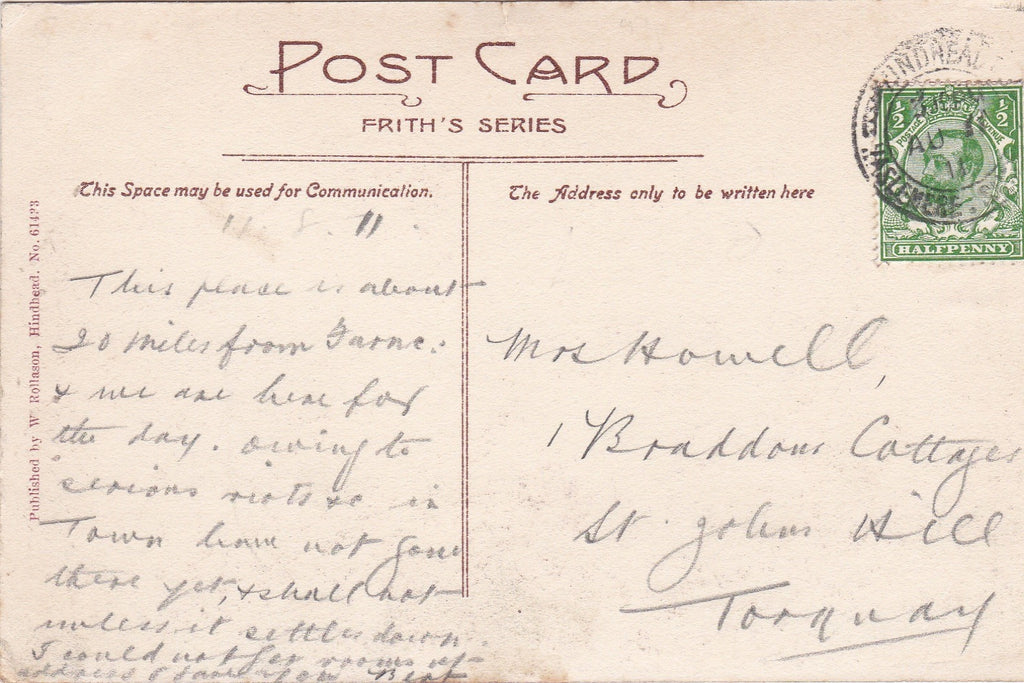 POST CARD
FRITH'S SERIES
This Space may be used for Communication.
The Address only to be written here
Published by W. Rollason, Hindhead. No. 61423
HINDHEAD
HASLEMERE
AU
11
½ ½
POSTAGE
HALFPENNY
11. 8. 11.
This place is about
20 miles from
& we are here for
the day. owing to
serious riots &c in
Town have not gone
there yet, & shall not
unless it settles down.
I could not get rooms at
address I gave you Bert
Mrs Howell,
1 Braddons Cottages
St. Johns Hill
Torquay